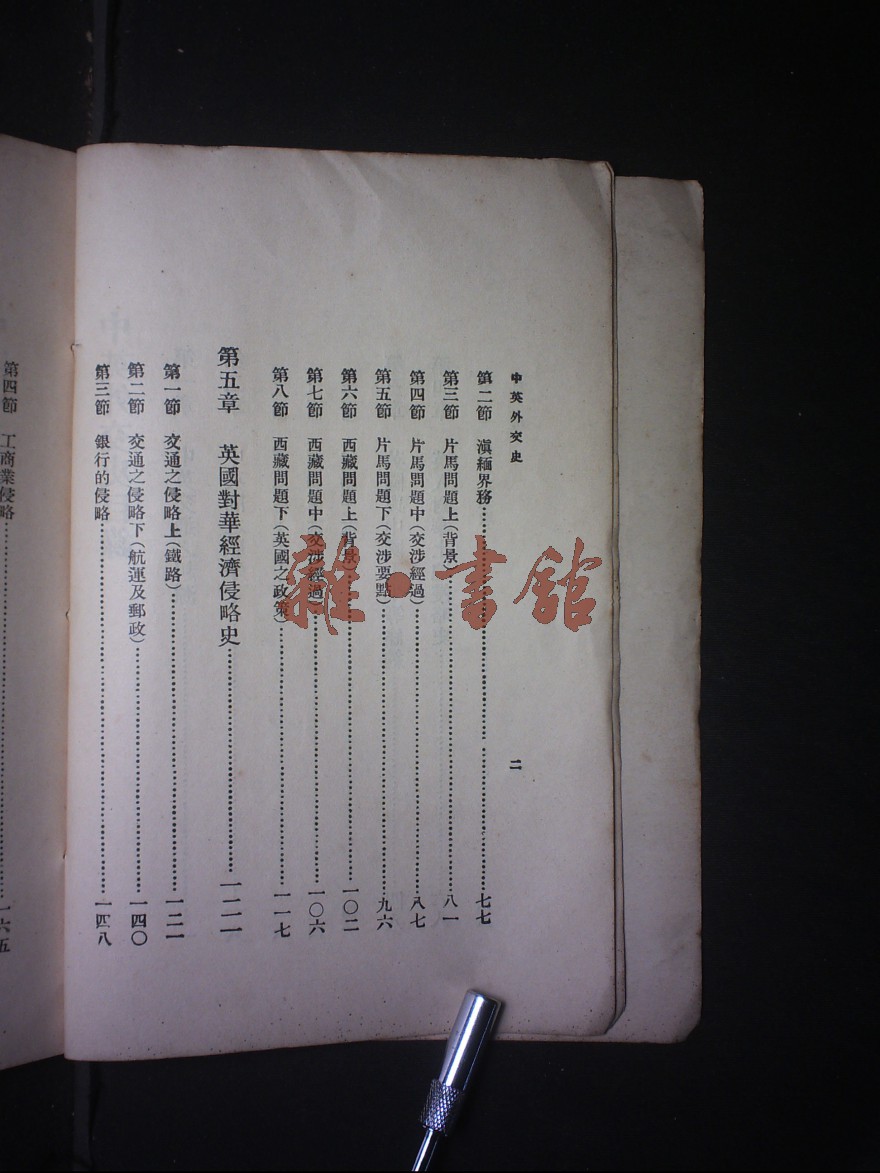 中英外交史
二
第二節 滇緬界務……七七
第三節 片馬問題上(背景)……八一
第四節 片馬問題中(交涉經過)……八七
第五節 片馬問題下(交涉要點)……九六
第六節 西藏問題上(背景)……一〇二
第七節 西藏問題中(交涉經過)……一〇六
第八節 西藏問題下(英國之政策)……一一七
第五章 英國對華經濟侵略史……一二一
第一節 交通之侵略上(鐵路)……一二一
第二節 交通之侵略下(航運及郵政)……一四〇
第三節 銀行的侵略……一四八
第四節 工商業侵略……一六五
雜·書館